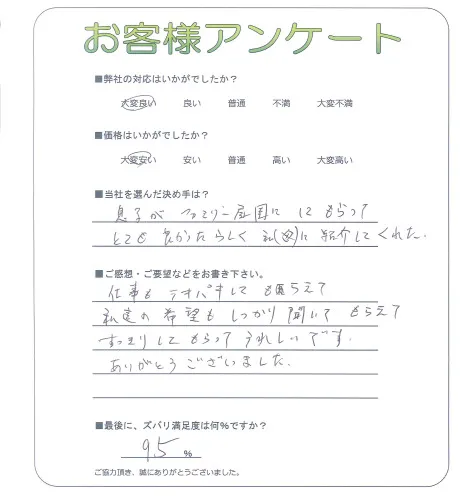 お客様アンケート
■弊社の対応はいかがでしたか?
大変良い 良い 普通 不満 大変不満
■価格はいかがでしたか?
大変安い 安い 普通 高い 大変高い
■当社を選んだ決め手は?
息子が ファミリー庭園に にもらって
とても 良かったらしく 私()に 紹介してくれた.
■ご感想・ご要望などをお書き下さい。
仕事も テキパキして もらえて
私達の 希望も しっかり 聞いて もらえて
すっきりしてもらって うれしいです.
ありがとうございました.
■最後に、ズバリ満足度は何%ですか?
95 %
ご協力頂き、誠にありがとうございました。